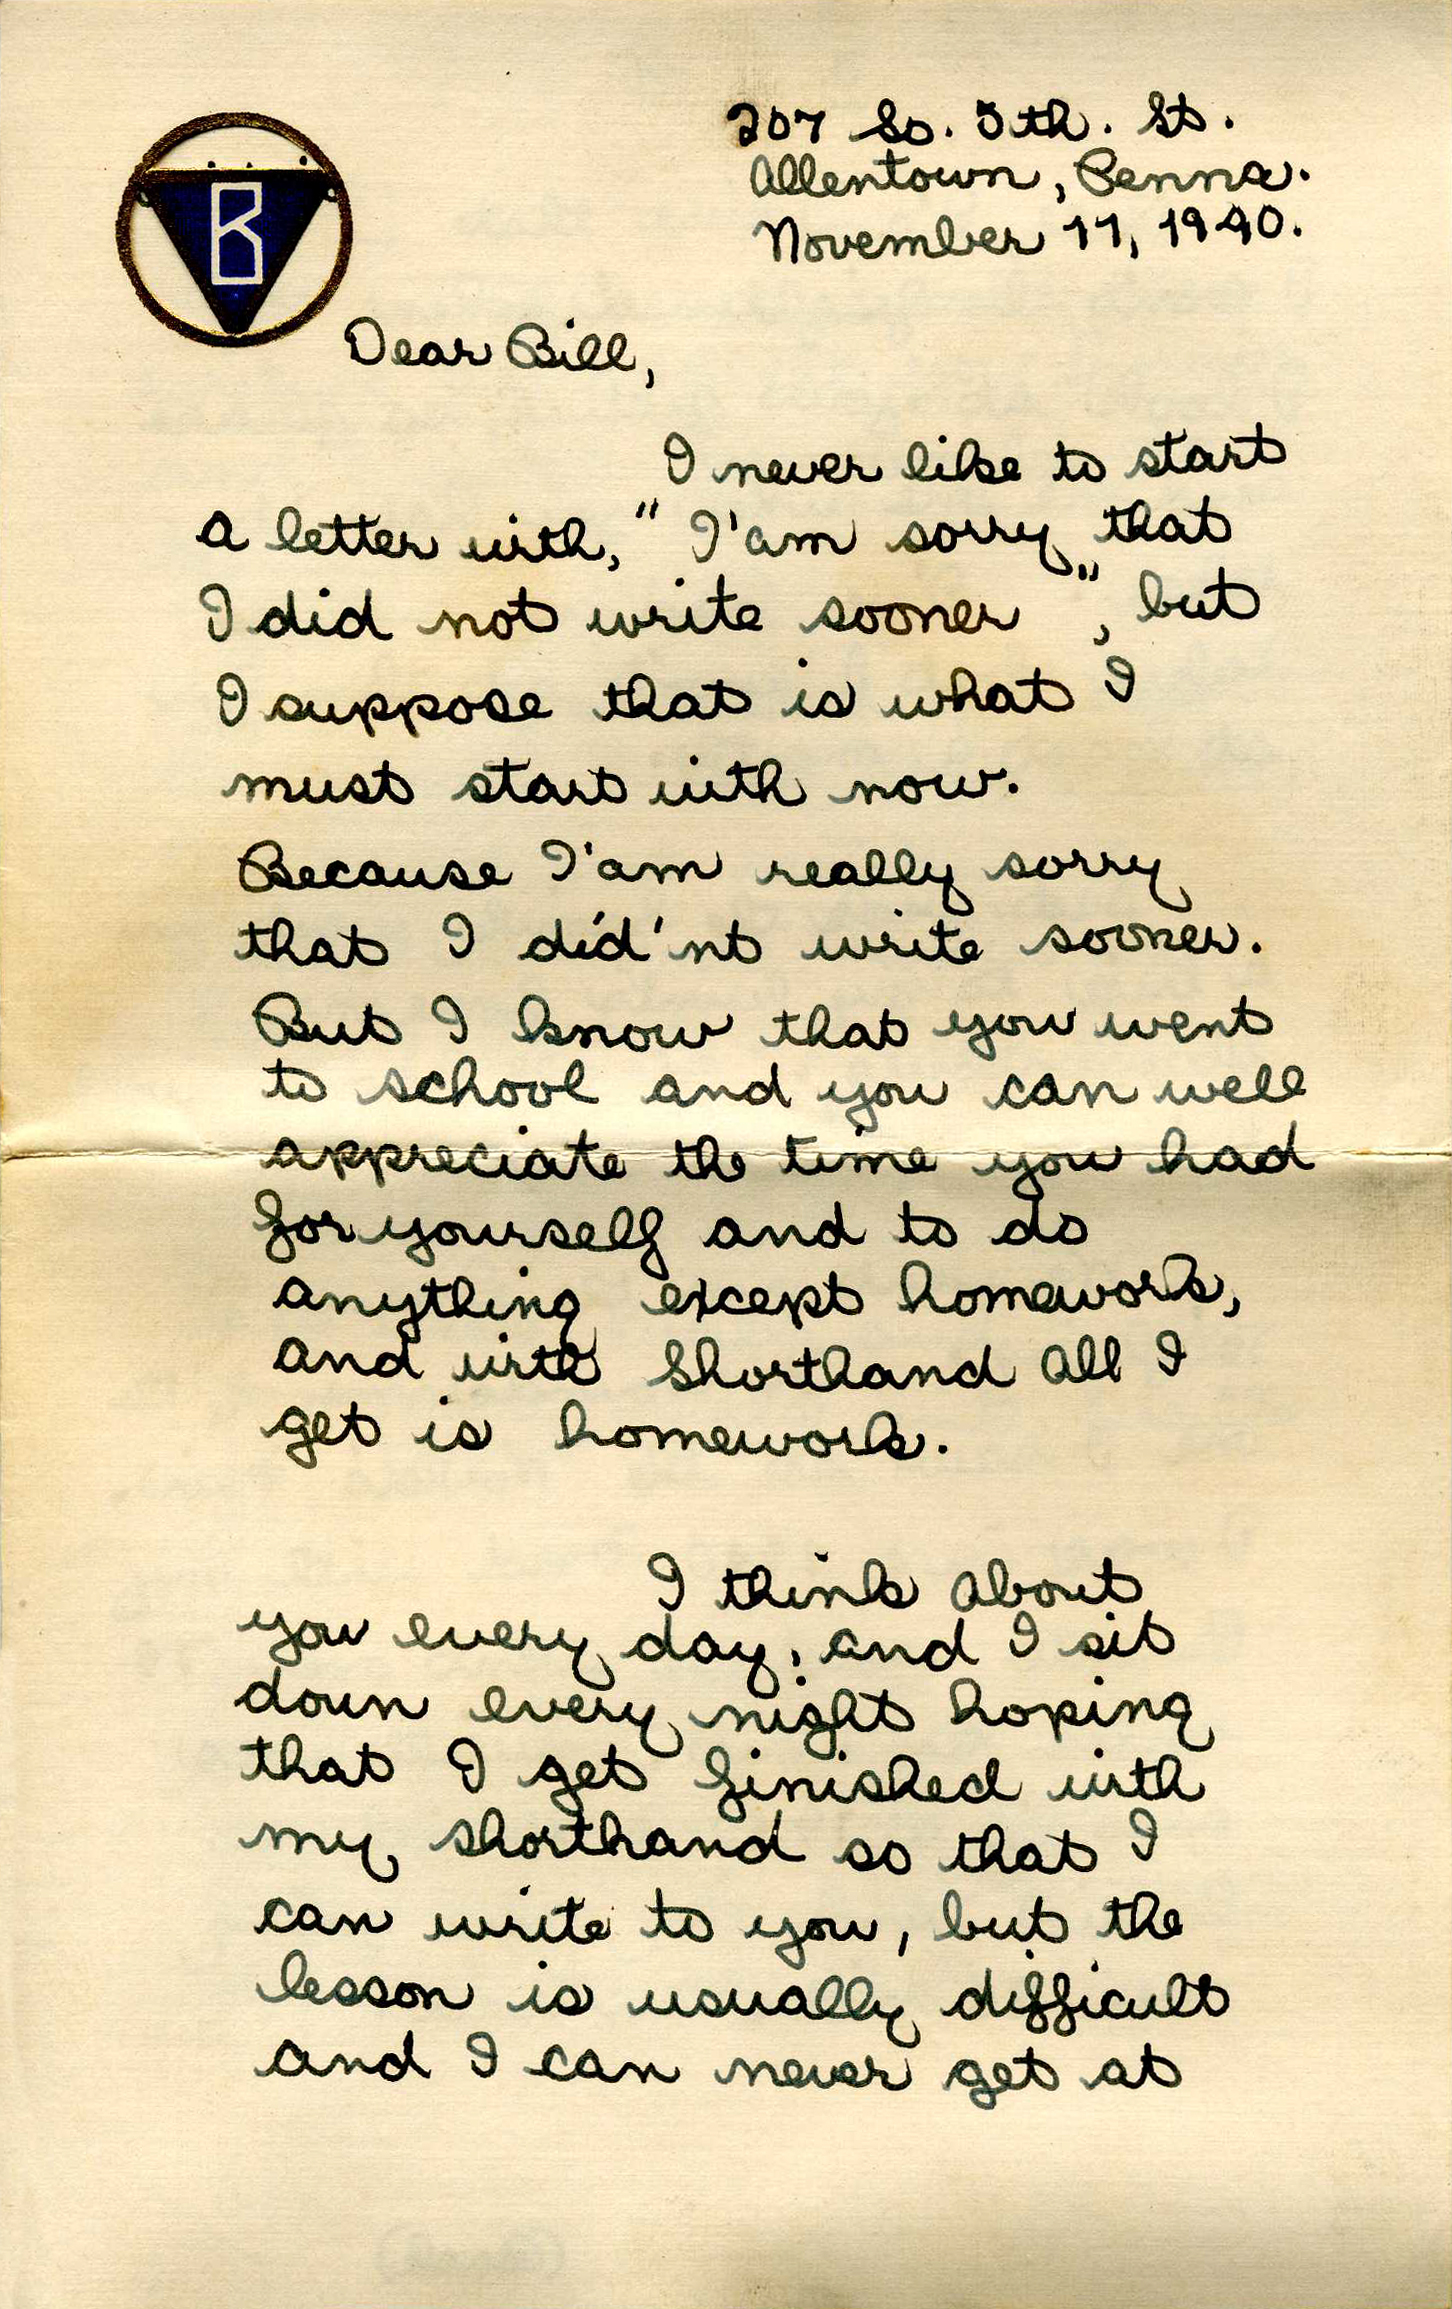 B
207 So. 5th. St.
Allentown, Penna.
November 11, 1940.
Dear Bill,
I never like to start
a letter with, " I'am sorry that
I did not write sooner ", but
I suppose that is what I
must start with now.
Because I'am really sorry
that I did'nt write sooner.
But I know that you went
to school and you can well
appreciate the time you had
for yourself and to do
anything except homework,
and with Shorthand all I
get is homework.
I think about
you every day, and I sit
down every night hoping
that I get finished with
my shorthand so that I
can write to you, but the
lesson is usually difficult
and I can never get at